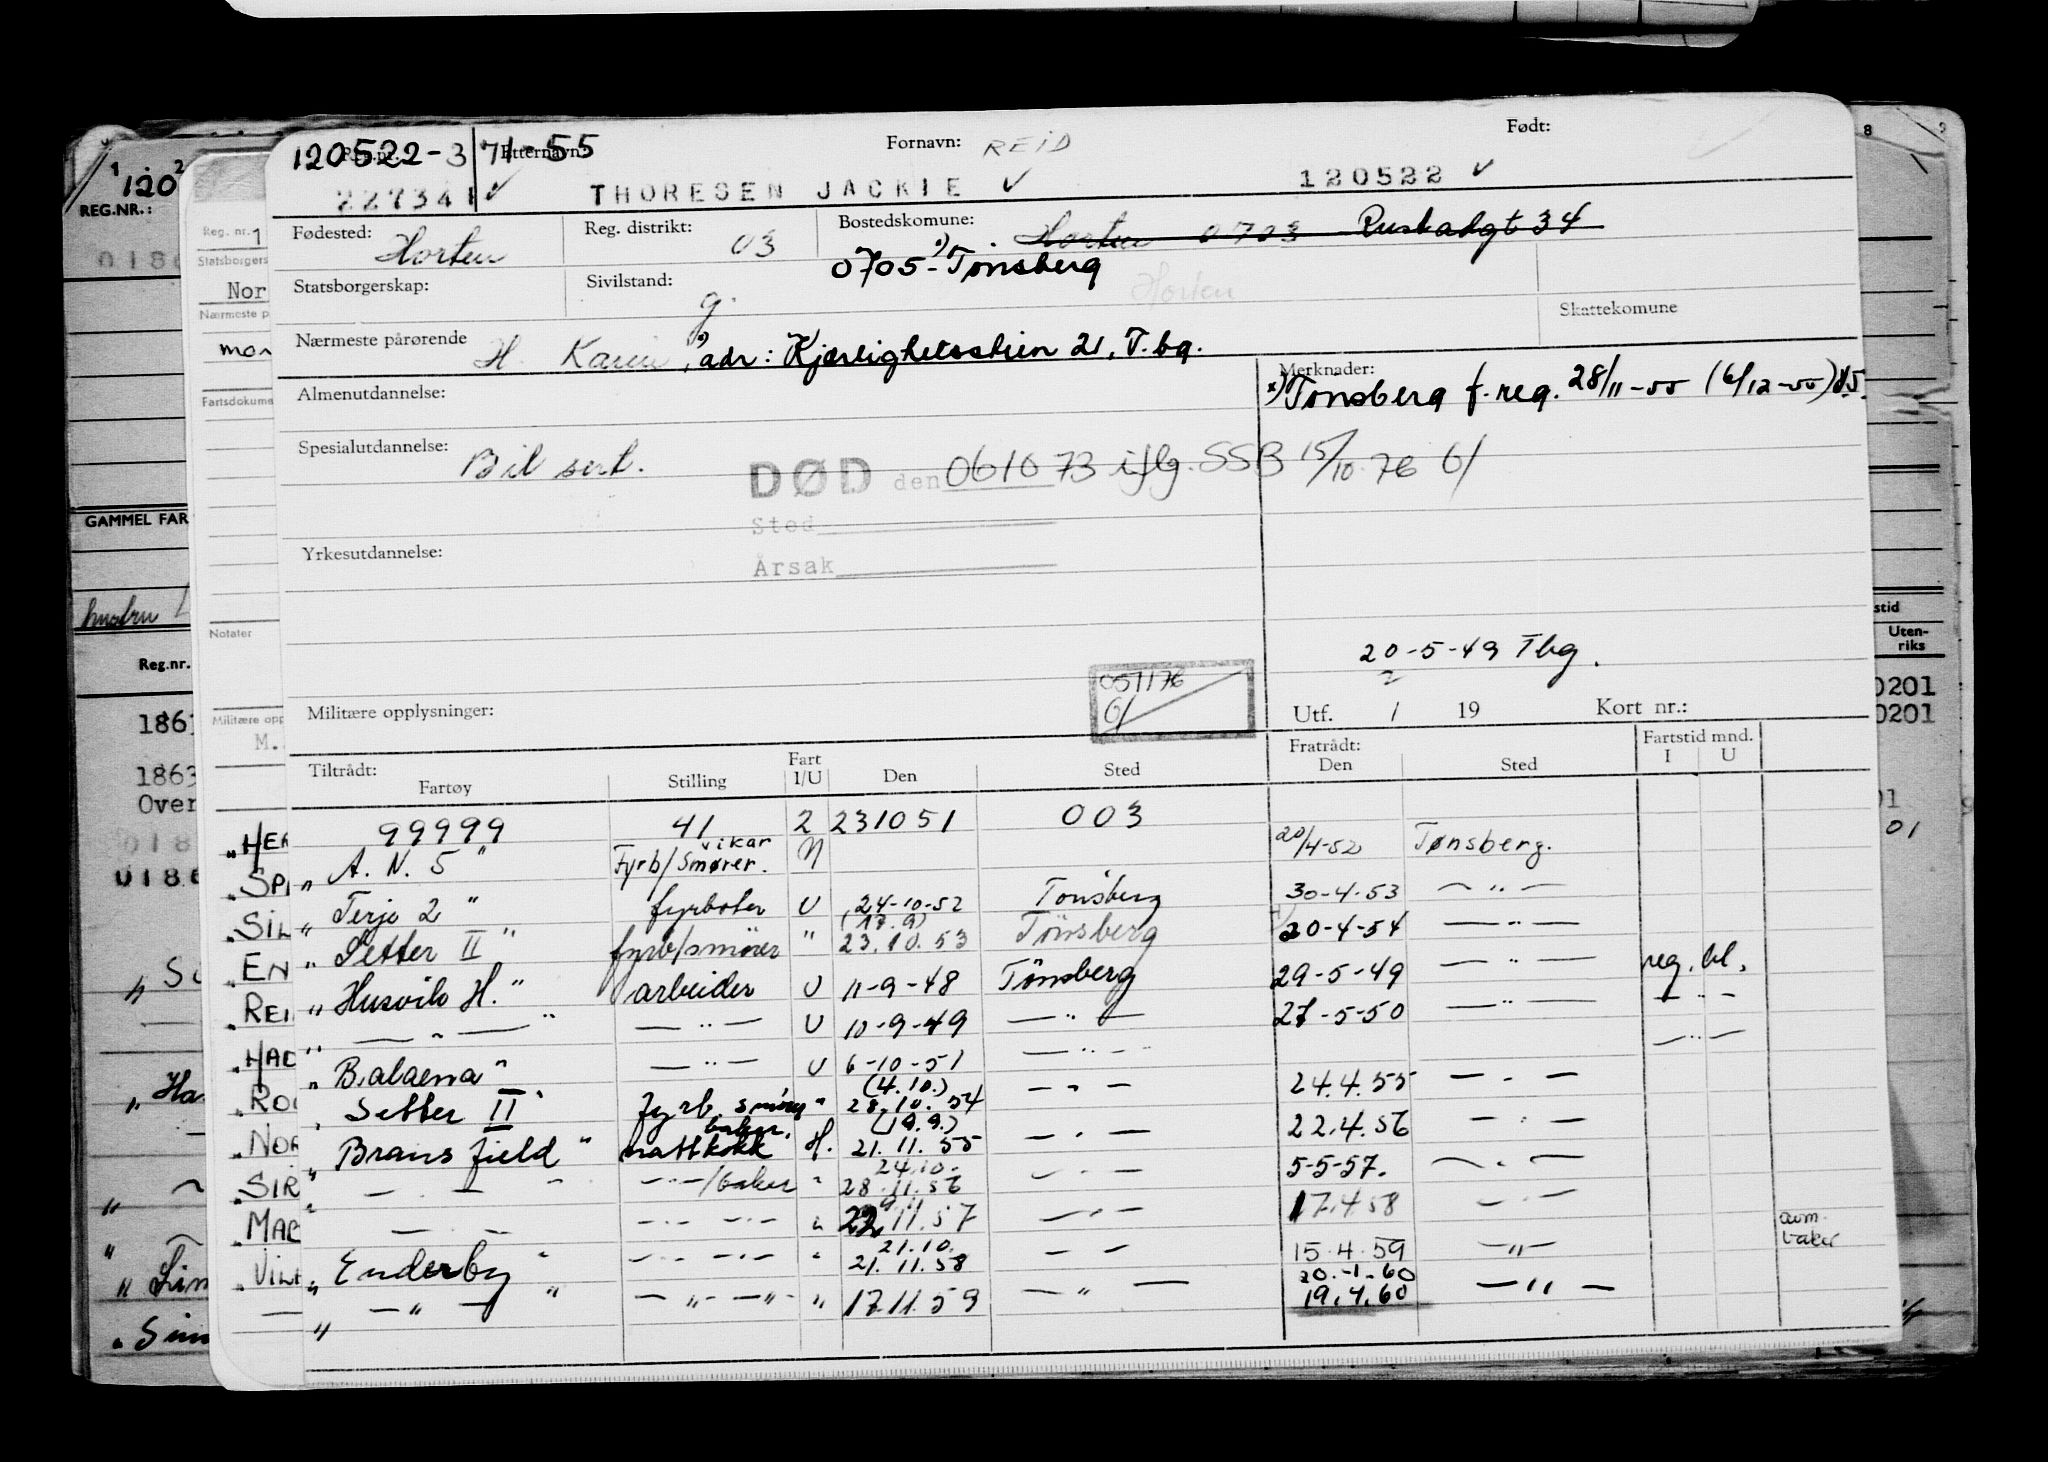 120522-3 71-55
Reg.nr. Etternavn: Fornavn: REID Født:
227341 ✓ THORESEN JACKIE ✓ 120522 ✓
Fødested: Horten Reg. distrikt: 03 Bostedskomune: Horten 0703 Rustadgt 34
x) 0705-Tønsberg
Statsborgerskap: Sivilstand: g. Horten
Skattekomune
Nærmeste pårørende H. Karin, x) adr: Kjærlighetsstien 21, T.bg.
Almenutdannelse: Merknader:
x) Tønsberg f. reg. 28/11-55 (6/12-55)
Spesialutdannelse: Bil sert.
DØD den 061073 iflg. SSB 15/10.76
Sted
Yrkesutdannelse:
Årsak
20-5-49 Tbg.
051176
Militære opplysninger: Utf. / 19 Kort nr.:
Tiltrådt: Fartøy Stilling Fart I/U Den Sted Fratrådt: Den Sted Fartstid mnd. I U
99999 41 2 231051 003
" A. N. 5 " Fyrb/Smører. vikar N 20/4-52 Tønsberg.
" Terje 2 " fyrbøter U 24-10-52 Tønsberg 30-4-53 — " —
" Setter II " fyrb/smører " (17.9) 23.10.53 Tönsberg 20-4-54 — " —
" Husvik H. " arbeider U 11-9-48 Tönsberg 29-5-49 — " — reg. bl.
" — " — " — " — U 10-9-49 — " — 27-5-50 — " — — " —
" Balaena " — " — U 6-10-51 — " — — " —
" Setter II " fyrb. smører " (4.10.) 28.10.54 — " — 24.4.55 — " —
" Bransfield " nattkokk baker. H. (19.9.) 21.11.55 — " — 22.4.56 — " —
" — " — " — " —/baker " 24.10. 28.11.56 — " — 5-5-57. — " —
— " — — " — — " — " 22.11.57 — " — 17.4.58 — " —
" Enderby " — " — — " — " 21.10. 21.11.58 — " — 15.4.59 — " — avm. baker
" — " — " — " — " — " 17.11.59 — " — 20.-1-60 19.4.60 — " —
"
REG.NR.:
GAMMEL FAR
Reg.nr.
1863
Over
Reg. nr. 1
Statsborgers
Nor
Nærmeste p
mor
Fartsdokume
Notater
Militære opp
M.
HER
SPI
SIL
EN
REI
HAD
NOR
SIR
MAC
VILH
stid
Uten-
riks
0201
0201
01